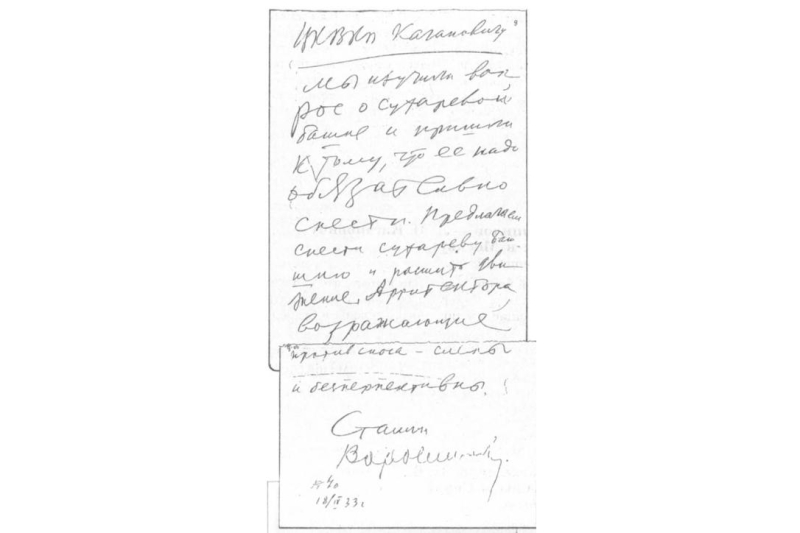 ЦКВКП Кагановичу
Мы изучили воп
рос о сухаревой
башне и пришли
к тому, что ее надо
обязательно
снести. Предлагаем
снести сухареву баш-
ню и расшить дви
жение. Архитектора,
возражающие
против сноса – слепы
и бесперпективны.
Сталин
Ворошилов.
№ 40
18/IX 33 г